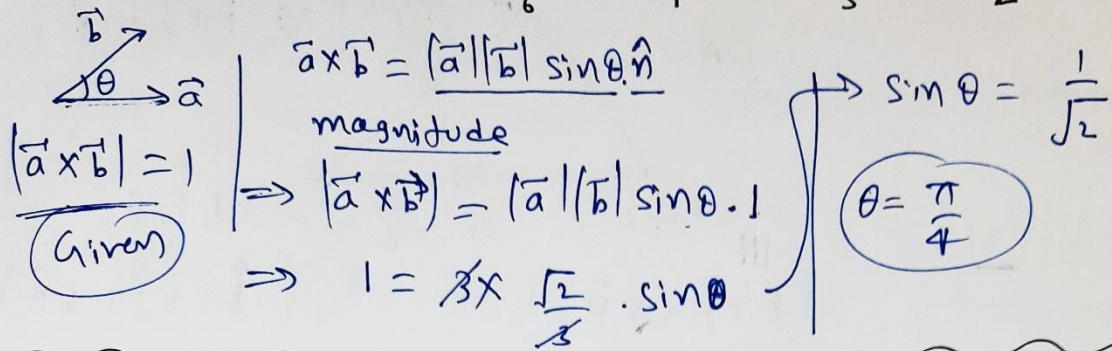 b⃗
θ
a⃗
|a⃗ × b⃗| = 1
Given
a⃗ × b⃗ = |a⃗||b⃗| sinθ.n̂
magnitude
⇒ |a⃗ × b⃗| = |a⃗||b⃗| sinθ.1
⇒ 1 = 3 × √2/3 . sinθ
→ sin θ = 1/√2
θ = π/4